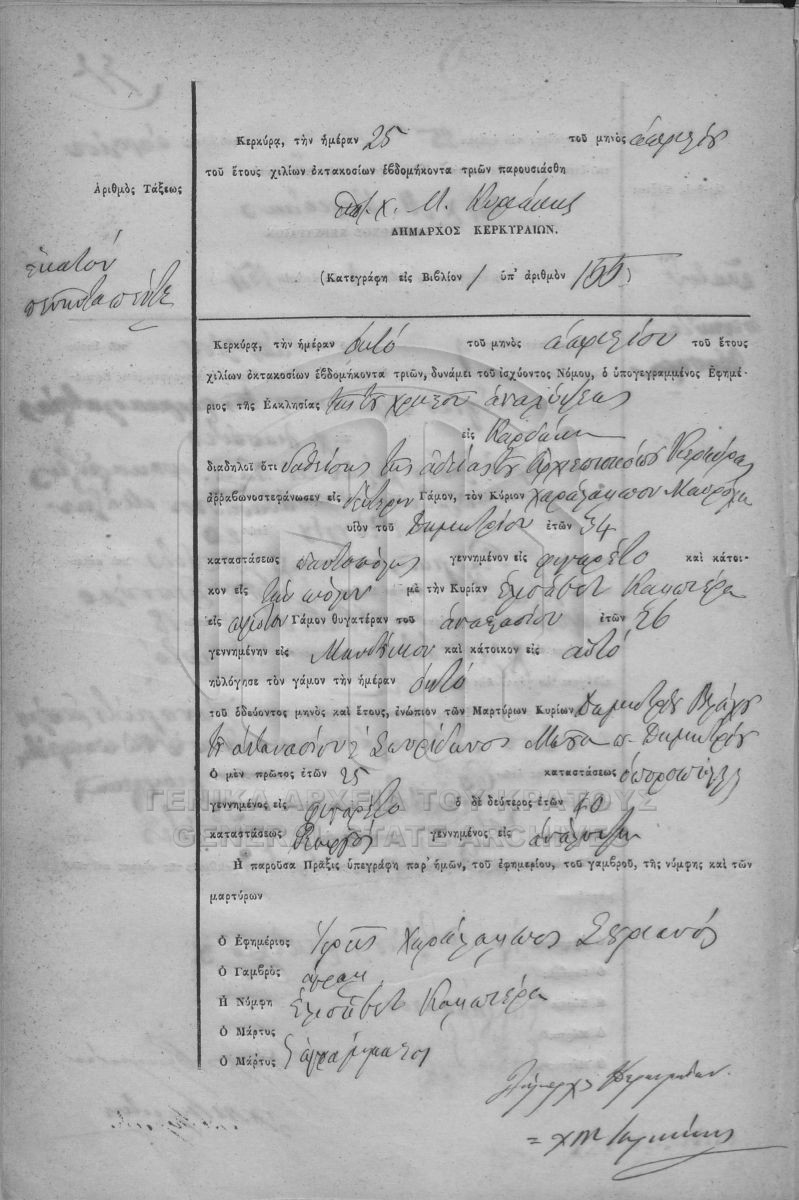 Κερκύρᾳ, τὴν ἡμέραν 25 τοῦ μηνὸς ἀπριλίου
τοῦ ἔτους χιλίων ὀκτακοσίων ἑβδομήκοντα τριῶν παρουσιάσθη
Ἀριθμὸς Τάξεως
χ. Μ.
ΔΗΜΑΡΧΟΣ ΚΕΡΚΥΡΑΙΩΝ.
ἑκατόν
(Κατεγράφη εἰς Βιβλίον 1 ὑπ' ἀριθμὸν 155)
Κερκύρᾳ, τὴν ἡμέραν ὀκτό τοῦ μηνὸς ἀπριλίου τοῦ ἔτους
χιλίων ὀκτακοσίων ἑβδομήκοντα τριῶν, δυνάμει τοῦ ἰσχύοντος Νόμου, ὁ ὑπογεγραμμένος Ἐφημέ-
ριος τῆς Ἐκκλησίας ἀναλήψεως
εἰς
διαδηλοῖ ὅτι δοθείσης τῆς ἀδείας τοῦ Ἀρχιεπισκόπου Κερκύρας
ἀρραβωνοστεφάνωσεν εἰς δεύτερον Γάμον, τὸν Κύριον χαράλαμπον
υἱὸν τοῦ Δημητρίου ἐτῶν 34
καταστάσεως παντοπόλης γεννημένον εἰς φιγαρέτο καὶ κάτοι-
κον εἰς τὴν πόλιν μὲ τὴν Κυρίαν Ἐλισάβετ Κακαπέρα
εἰς πρῶτον Γάμον θυγατέραν τοῦ ἀναστασίου ἐτῶν 26
γεννημένην εἰς Μαντούκιον καὶ κάτοικον εἰς αὐτό
ηὐλόγησε τὸν γάμον τὴν ἡμέραν ὀκτό
τοῦ ὁδεύοντος μηνὸς καὶ ἔτους, ἐνώπιον τῶν Μαρτύρων Κυρίων Δημητρίου Βλάχου
ἀθανασίου Σπυρίδωνος Δημητρίου
Ὁ μὲν πρῶτος ἐτῶν 25 καταστάσεως ὀποροπόλης
γεννημένος εἰς φιγαρέτο ὁ δὲ δεύτερος ἐτῶν 40
καταστάσεως γεννημένος εἰς
ΓΕΝΙΚΑ ΑΡΧΕΙΑ ΤΟΥ ΚΡΑΤΟΥΣ
GENERAL STATE ARCHIVES
Ἡ παροῦσα Πρᾶξις ὑπεγράφη παρ' ἡμῶν, τοῦ ἐφημερίου, τοῦ γαμβροῦ, τῆς νύμφης καὶ τῶν
μαρτύρων
Ὁ Ἐφημέριος Ἱερεὺς Χαράλαμπος
Ὁ Γαμβρὸς
Ἡ Νύμφη Ἐλισάβετ Κακαπέρα
Ὁ Μάρτυς
Ὁ Μάρτυς ἀγράμματοι